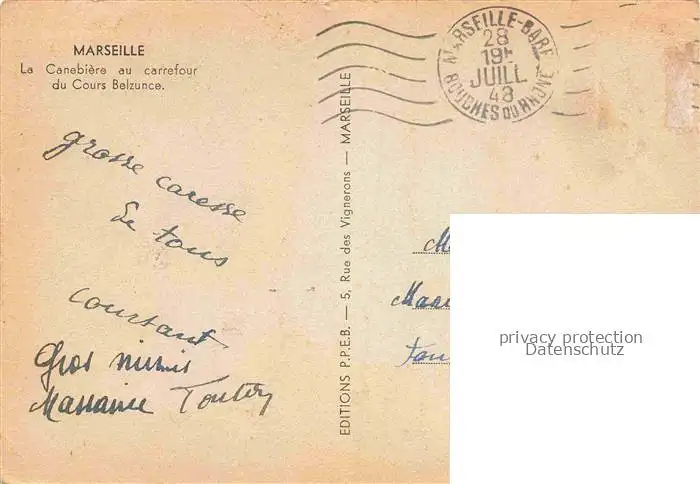 MARSEILLE
La Canebière au carrefour
du Cours Belzunce.
grosse caresse
de tous
constant
Gros mimis
EDITIONS P.P.E.B. — 5, Rue des Vignerons — MARSEILLE
MARSEILLE-BARE
28
19H
JUILL
48
BOUCHES DU RHONE
privacy protection
Datenschutz